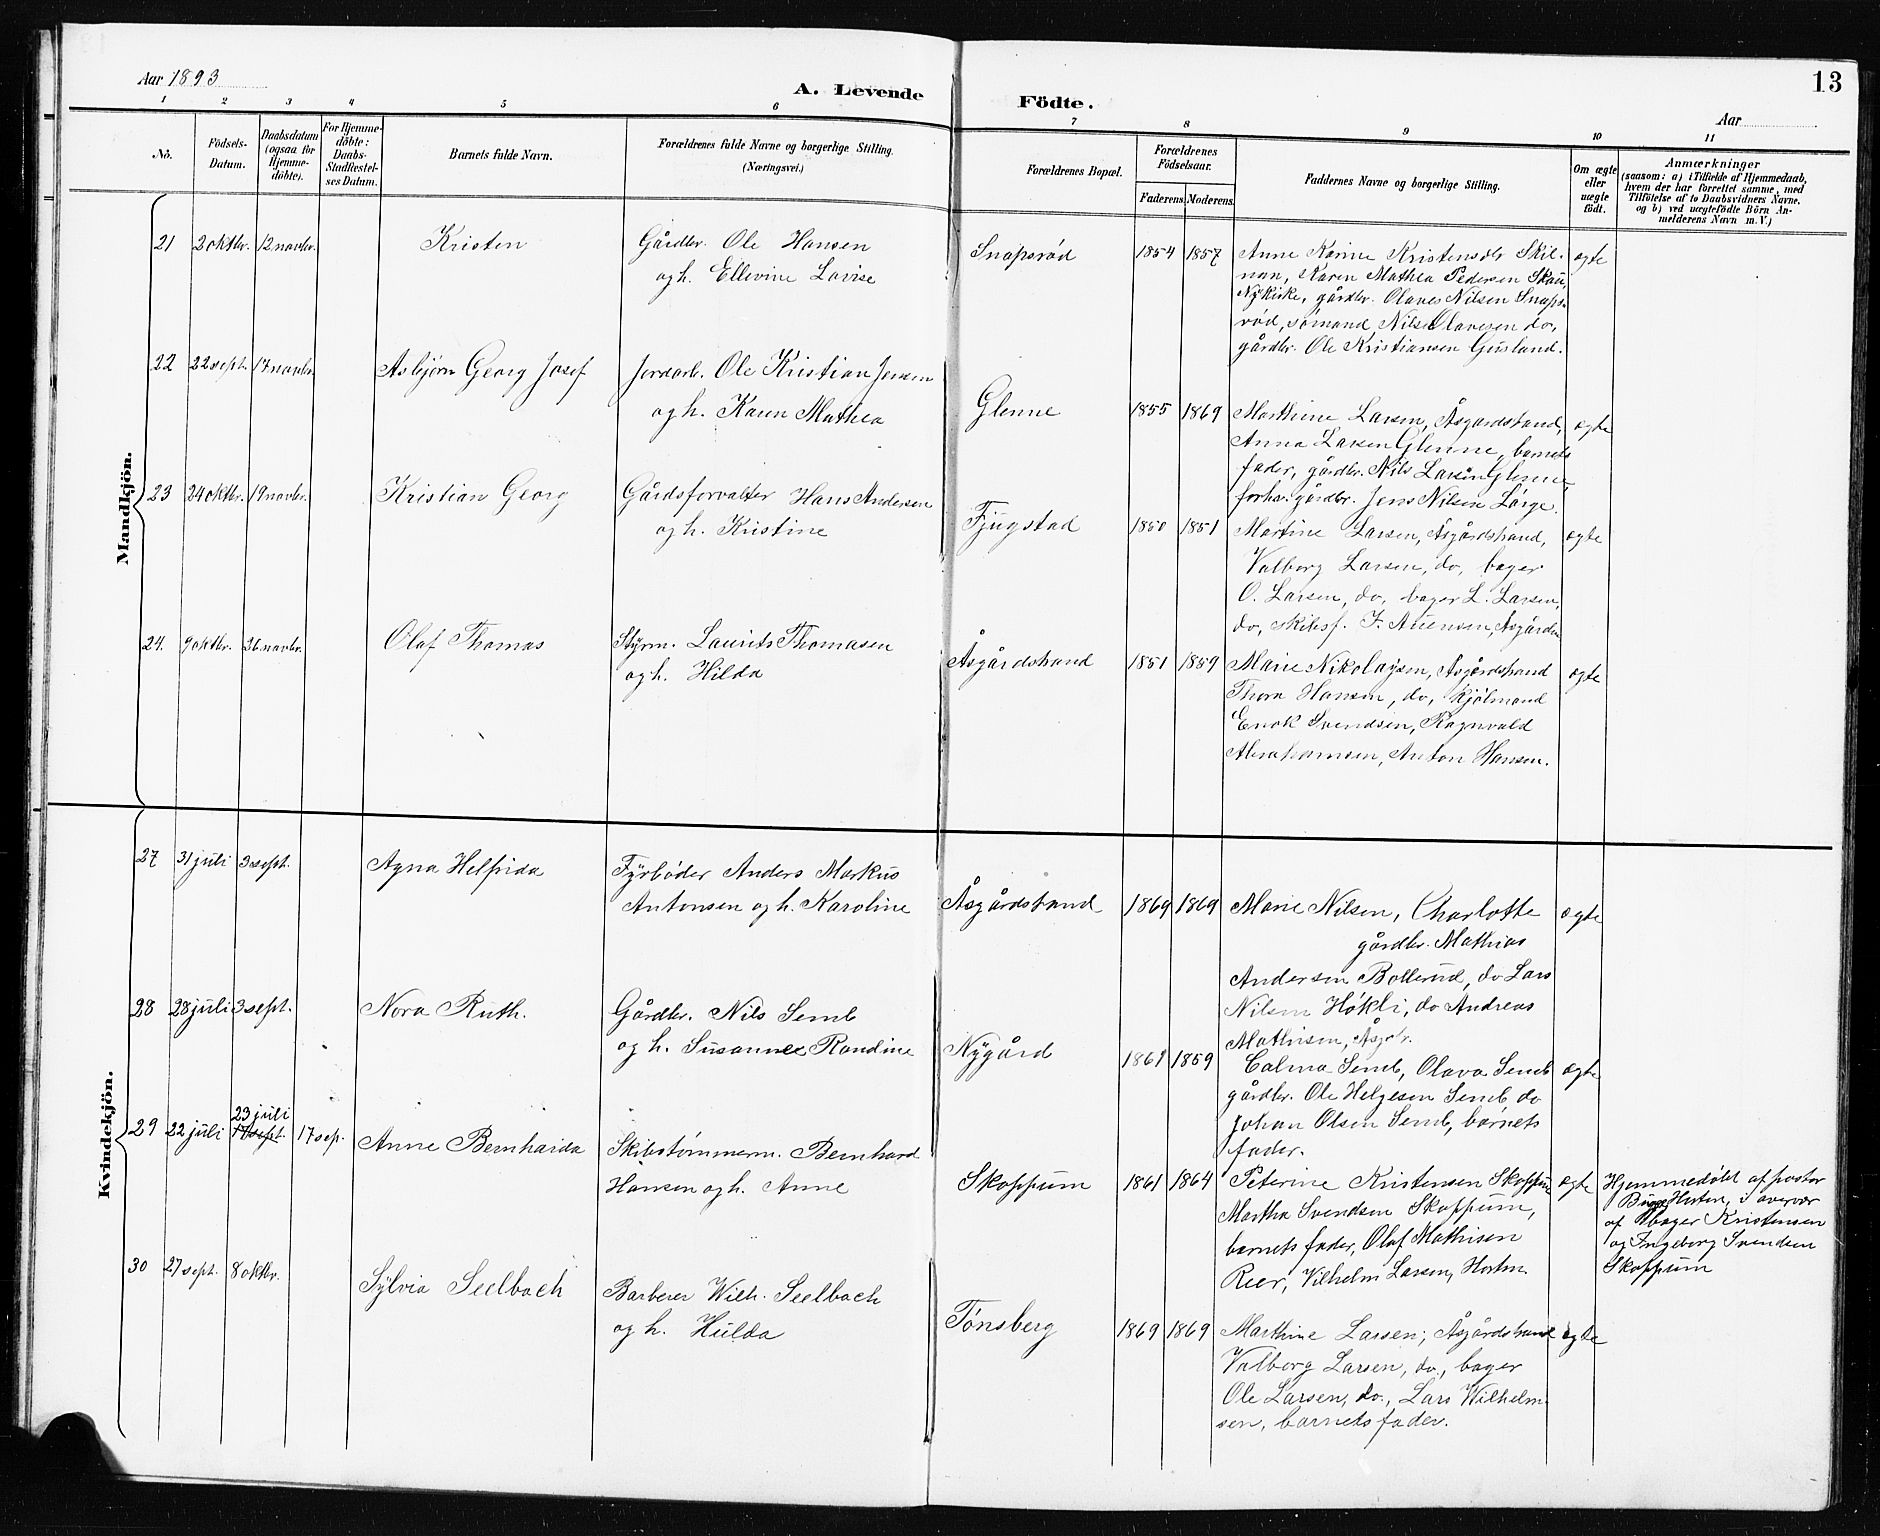 Aar 1893
A. Levende
Födte.
13
Aar
1 2 3 4 5 6 7 8 9 10 11
No.
Födsels-
Datum.
Daabsdatum
(ogsaa for
Hjemme-
döbte).
For Hjemme-
döbte:
Daabs-
Stadfestel-
ses Datum.
Barnets fulde Navn.
Forældrenes fulde Navne og borgerlige Stilling.
(Næringsvei.)
Forældrenes Bopæl.
Forældrenes
Födselsaar.
Faderens. Moderens.
Faddernes Navne og borgerlige Stilling.
Om ægte
eller
uægte
födt.
Anmærkninger
(saasom: a) i Tilfælde af Hjemmedaab,
hvem der har forrettet samme, med
Tilföielse af to Daabsvidners Navne,
og b) ved uægtefödte Börn An-
melderens Navn m. V.)
Mandkjön.
21 2 oktbr. 12 novbr. Kristen
Gårdbr. Ole Hansen
og h. Ellevine Lovise
Snapsrød 1854 1857
Anne Karine Kristensdtr Skil-
nan, Karen Mathea Pedersen Skau,
Nykirke, gårdbr. Olaves Nilsen Snaps-
rød, sømand Nils Olavesen do,
gårdbr. Ole Kristiansen Gusland.
ægte
22 22 sept. 17 novbr. Asbjørn Georg Josef
Jordarb. Ole Kristian Jensen
og h. Karen Mathea
Glenne 1855 1869
Marthine Larsen, Åsgårdstrand,
Anna Larsen Glenne, barnets
fader, gårdbr. Nils Larsen Glenne,
forhv. gårdbr. Jens Nilsen
ægte
23 24 oktbr. 19 novbr. Kristian Georg
Gårdsforvalter Hans Andersen
og h. Kristine
Fjugstad 1850 1851
Martine Larsen, Åsgårdstrand,
Valborg Larsen, do, bager
O. Larsen, do, bager L. Larsen,
do, skibsf. Åsgårdstr.
ægte
24. 9 oktbr. 26 novbr. Olaf Thomas
Styrm. Laurits Thomasen
og h. Hilda
Åsgårdstrand 1851 1859
Marie Nikolaysen, Åsgårdstrand
Thora Hansen, do, kjølmand
Enok Svendsen, Ragnvald
Abrahamsen, Anton Hansen.
ægte
Kvindekjön.
27 31 juli 3 sept. Agna Helfrida
Fyrbøder Anders Markus
Antonsen og h. Karoline
Åsgårdstrand 1869 1869
Marie Nilsen, Charlotte
gårdbr. Mathias
Andersen Bollerud, do Lars
Nilsen Høkli, do Andreas
Mathisen, Åsgstr.
ægte
28 28 juli 3 sept. Nora Ruth.
Gårdbr. Nils Semb
og h. Susanne Randine
Nygård 1861 1859
Calma Semb, Olava Semb
gårdbr. Ole Helgesen Semb, do
Johan Olsen Semb, barnets
fader.
ægte
29 22 juli 23 juli 17 sept. 17 sep. Anne Bernharda
Skibstømmerm. Bernhard
Hansen og h. Anne
Skoppum 1861 1864
Peterine Kristensen Skoppum
Martha Svendsen Skoppum,
barnets fader, Olaf Mathisen
Reer, Vilhelm Larsen, Horten.
ægte
Hjemmedøbt af pastor
Bugge Horten, i overvær
af bager Kristensen
og Ingeborg Svendsen
Skoppum
30 27 sept. 8 oktbr. Sylvia Seelbach
Barberer Wilh. Seelbach
og h. Hulda
Tønsberg 1869 1869
Marthine Larsen, Åsgårdstrand
Valborg Larsen, do, bager
Ole Larsen, do., Lars Wilhelm-
sen, barnets fader.
ægte